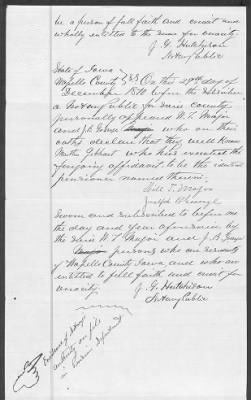 be a person of full faith and credit and
wholly entitled to the same for veracity
J. G. Hutchison
Notary Public
State of Iowa
Wapello County } SS On this 29th day of
December 1870 before the subscriber
a Notary Public for said county
personally appeared W. T. Major
and J. B. George who on their
oaths declare that they well know
Martha Gebhart who has executed the
foregoing affidavit to be the identical
pensioner named therein.
Will T. Major
Sworn and subscribed to before me
the day and year aforesaid by
the said W. T. Major and J. B. George
persons who are residents
of Wapello County Iowa, and who are
entitled to full faith and credit for
veracity.
J. G. Hutchison
Notary Public
Evidence of
authority on file
in Pension department